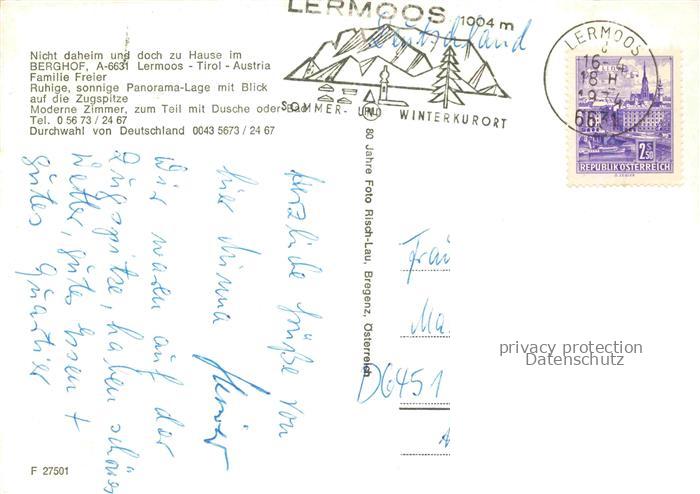 LERMOOS 1004 m
Deutschland
SOMMER- UND WINTERKURORT
LERMOOS
16.-4
18 H
6631
LINZ
2.50
REPUBLIK ÖSTERREICH
Nicht daheim und doch zu Hause im
BERGHOF, A-6631 Lermoos - Tirol - Austria
Familie Freier
Ruhige, sonnige Panorama-Lage mit Blick
auf die Zugspitze
Moderne Zimmer, zum Teil mit Dusche oder Bad
Tel. 0 56 73 / 24 67
Durchwahl von Deutschland 0043 5673 / 24 67
Herzliche Grüße von
hier
Wir waren auf der
Zugspitze, haben schönes
Wetter, gutes Essen +
gutes Quartier
80 Jahre Foto Risch-Lau, Bregenz, Österreich
Frau
Ma
D6451
privacy protection
Datenschutz
F 27501